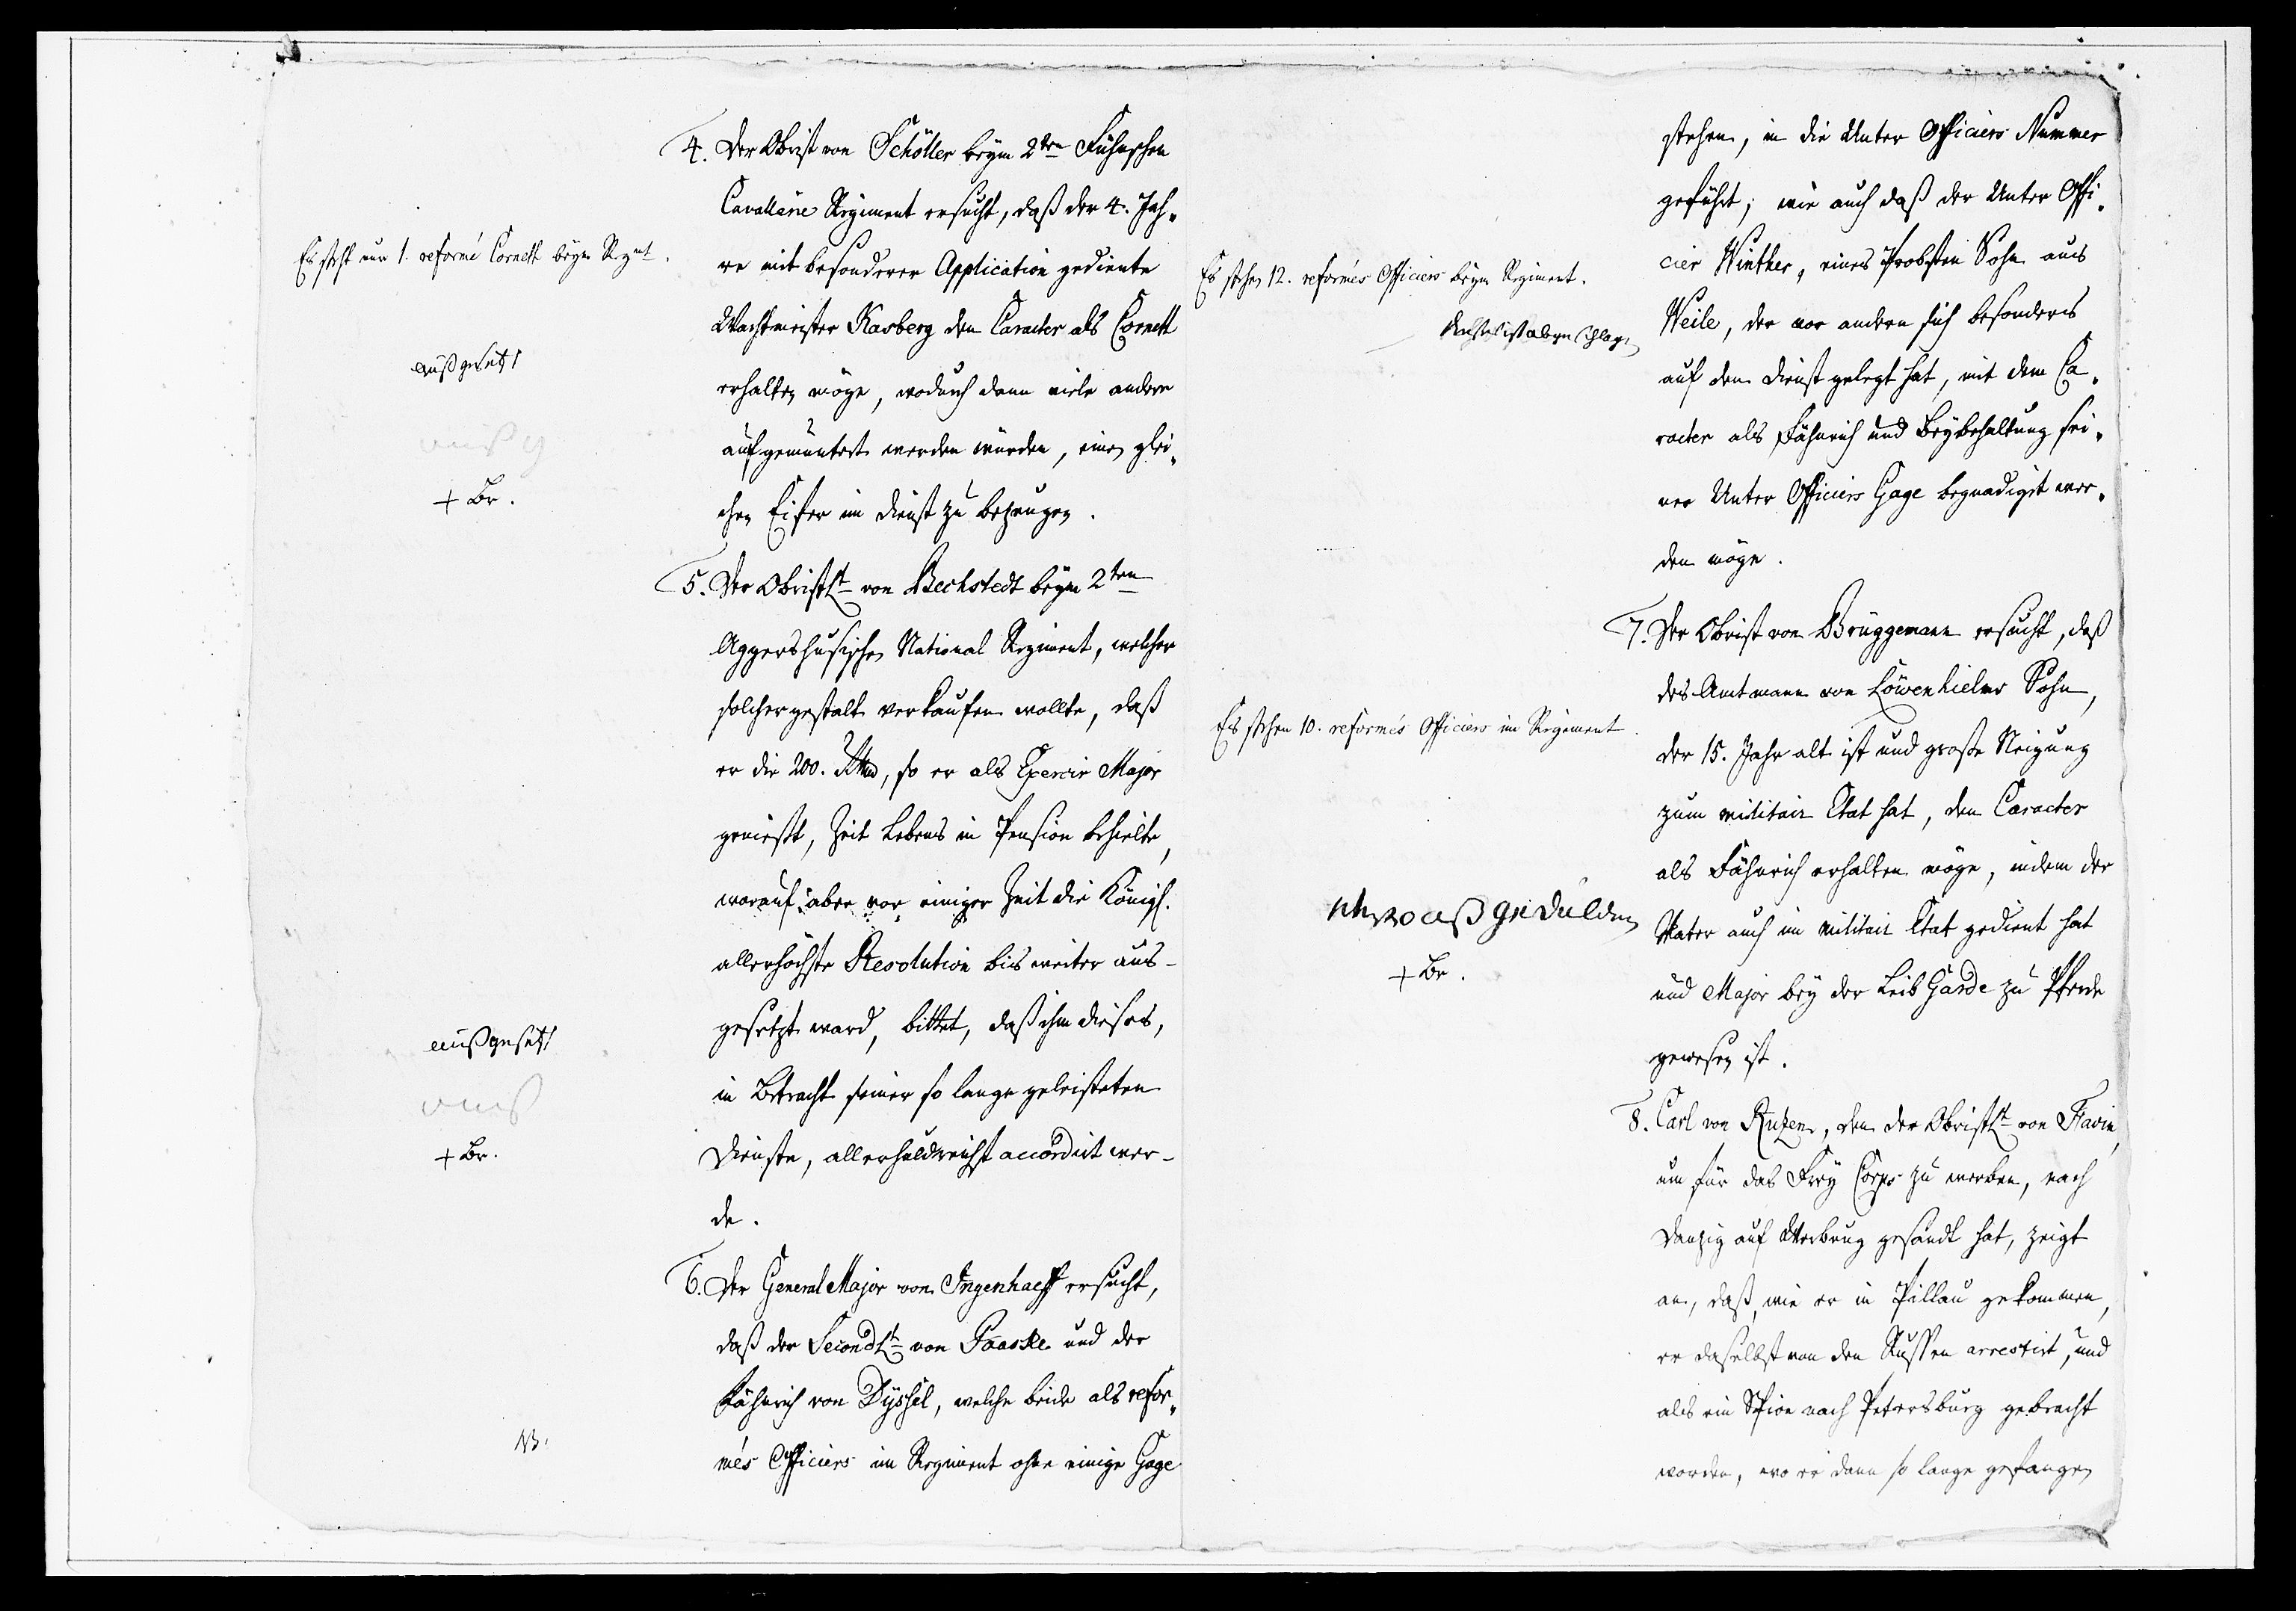 4. Der Obrist von Schöller beym 2ten Fühnschen
Cavallerie Regiment ersucht, daß der 4. Jah„
re mit besonderer Application gediente
Wachtmeister Kasberg den Caracter als Cornett
erhalten möge, wodurch dann viele andere
aufgemuntert werden würden, einen glei„
chen Eifer im Dienst zu bezeugen.
Es steht nur 1. reformé Cornett beym Regmt.
außgesetzt
auß g
+ Br.
5. Der Obristlt von Bechstedt beym 2ten
Aggershusischen National Regiment, welcher
solchergestalt verkaufen wollte, daß
er die 200. Rthd, so er als Exercir Major
genießt, Zeit Lebens in Pension behielte,
worauf aber vor einiger Zeit die Königl.
allerhöchste Resolution bis weiter aus-
gesetzt ward, bittet, daß ihm dieses,
in Betracht seiner so lange geleisteten
Dienste, allerhuldreichst accordirt wer-
de.
außgesetzt
auß
+ Br.
6. Der General Major von Ingenhaeff ersucht,
daß der Secondlt von Paaske und der
Fähnrich von Dyssel, welche beide als refor„
més Officiers im Regiment ohne einige Gage
NB.
stehen, in die Unter Officiers Nummer
geführt; wie auch daß der Unter Offi„
cier Winther, eines Probsten Sohn aus
Weile, der vor andern sich besonders
auf den Dienst gelegt hat, mit dem Ca„
racter als Fähnrich und Beybehaltung sei„
ner Unter Officiers Gage begnadigt wer„
den möge.
Es stehen 12. reformés Officiers beym Regiment.
ist abgeschlagen
7. Der Obrist von Brüggemann ersucht, daß
des Amtmann von Löwenhielms Sohn,
der 15. Jahr alt ist und große Neigung
zum militair Etat hat, den Caracter
als Fähnrich erhalten möge, indem der
Vater auch im militair Etat gedient hat
und Major bey der Leib Garde zu Pferde
gewesen ist.
Es stehen 10. reformés Officiers im Regiment
gedulden
+ Br.
8. Carl von Rutzen, den der Obristlt von Flavin,
um für das Frey Corps zu werben, nach
Danzig auf Werbung gesandt hat, zeigt
an, daß, wie er in Pillau gekommen,
er daselbst von den Russen arrestirt, und
als ein Spion nach Petersburg gebracht
worden, wo er dann so lange gefangen